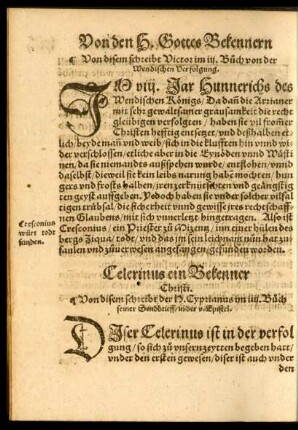 Von den H. Gottes Bekennern
¶ Von disem schreibt Victor im iij. Büch von der
Wendischen Verfolgung.
IM viij. Jar Hunnerichs des
Wendischen Königs/ Da dañ die Arrianer
mit sehr gewaltsamer grausamkeit die recht
gleübigen verfolgten / haben sie vil frommer
Christen hefftig entsetzet/ vnd deßhalben et-
lich/ bey de mañ vnd weib/ sich in die klufften hin vnnd wi-
der verschlossen/ etliche aber in die Eynöden vnnd Wüsti-
nen, da sie niemandts außspehen wurde/ entflohen/ vnnd
daselbst/ dieweil sie kein leibs narung habē mochten/ hun
gers vnd frosts halben/ jren zerknütschten vnd geängstig
ten geyst auffgeben. Yedoch haben sie vnder solcher vilfal
tigen trübsal/ die sicherheit vnnd gewisse jres rechtschaff-
nen Glaubens/ mit sich vnuerletzt hingetragen. Also ist
Cresconius/ ein Priester zů Mizentz/ inn einer hülen des
bergs Ziqua/ tode/ vnd das jm sein leichnam nün hat zu-
faulen vnd zuuerwesen angefangen/ gefunden worden.
Cresconius
würt todt
funden.
Celerinus ein Bekenner
Christi.
¶ Von disem schreibt der H. Cyprianus im iiij. Büch
seiner Sendbrieff/ in der v. Epistel.
DIser Celerinus ist in der verfol
gung/ so sich zů vnsern zeytten begeben hatt/
vnder den ersten gewesen/ diser ist auch vnder
den